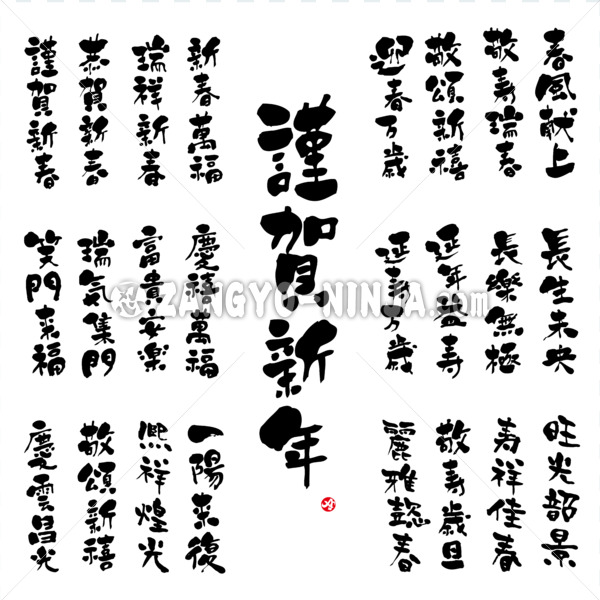 春風献上
敬寿瑞春
敬頌新禧
迎春万歳
長生未央
長樂無極
延年益寿
延寿万歳
旺光韶景
寿祥佳春
敬寿歳旦
麗雅懿春
謹賀新年
新春萬福
瑞祥新春
恭賀新春
謹賀新春
慶禧萬福
富貴安楽
瑞気集門
笑門来福
一陽来復
熈祥煌光
敬頌新禧
慶雲昌光
ZANGYO-NINJA.com